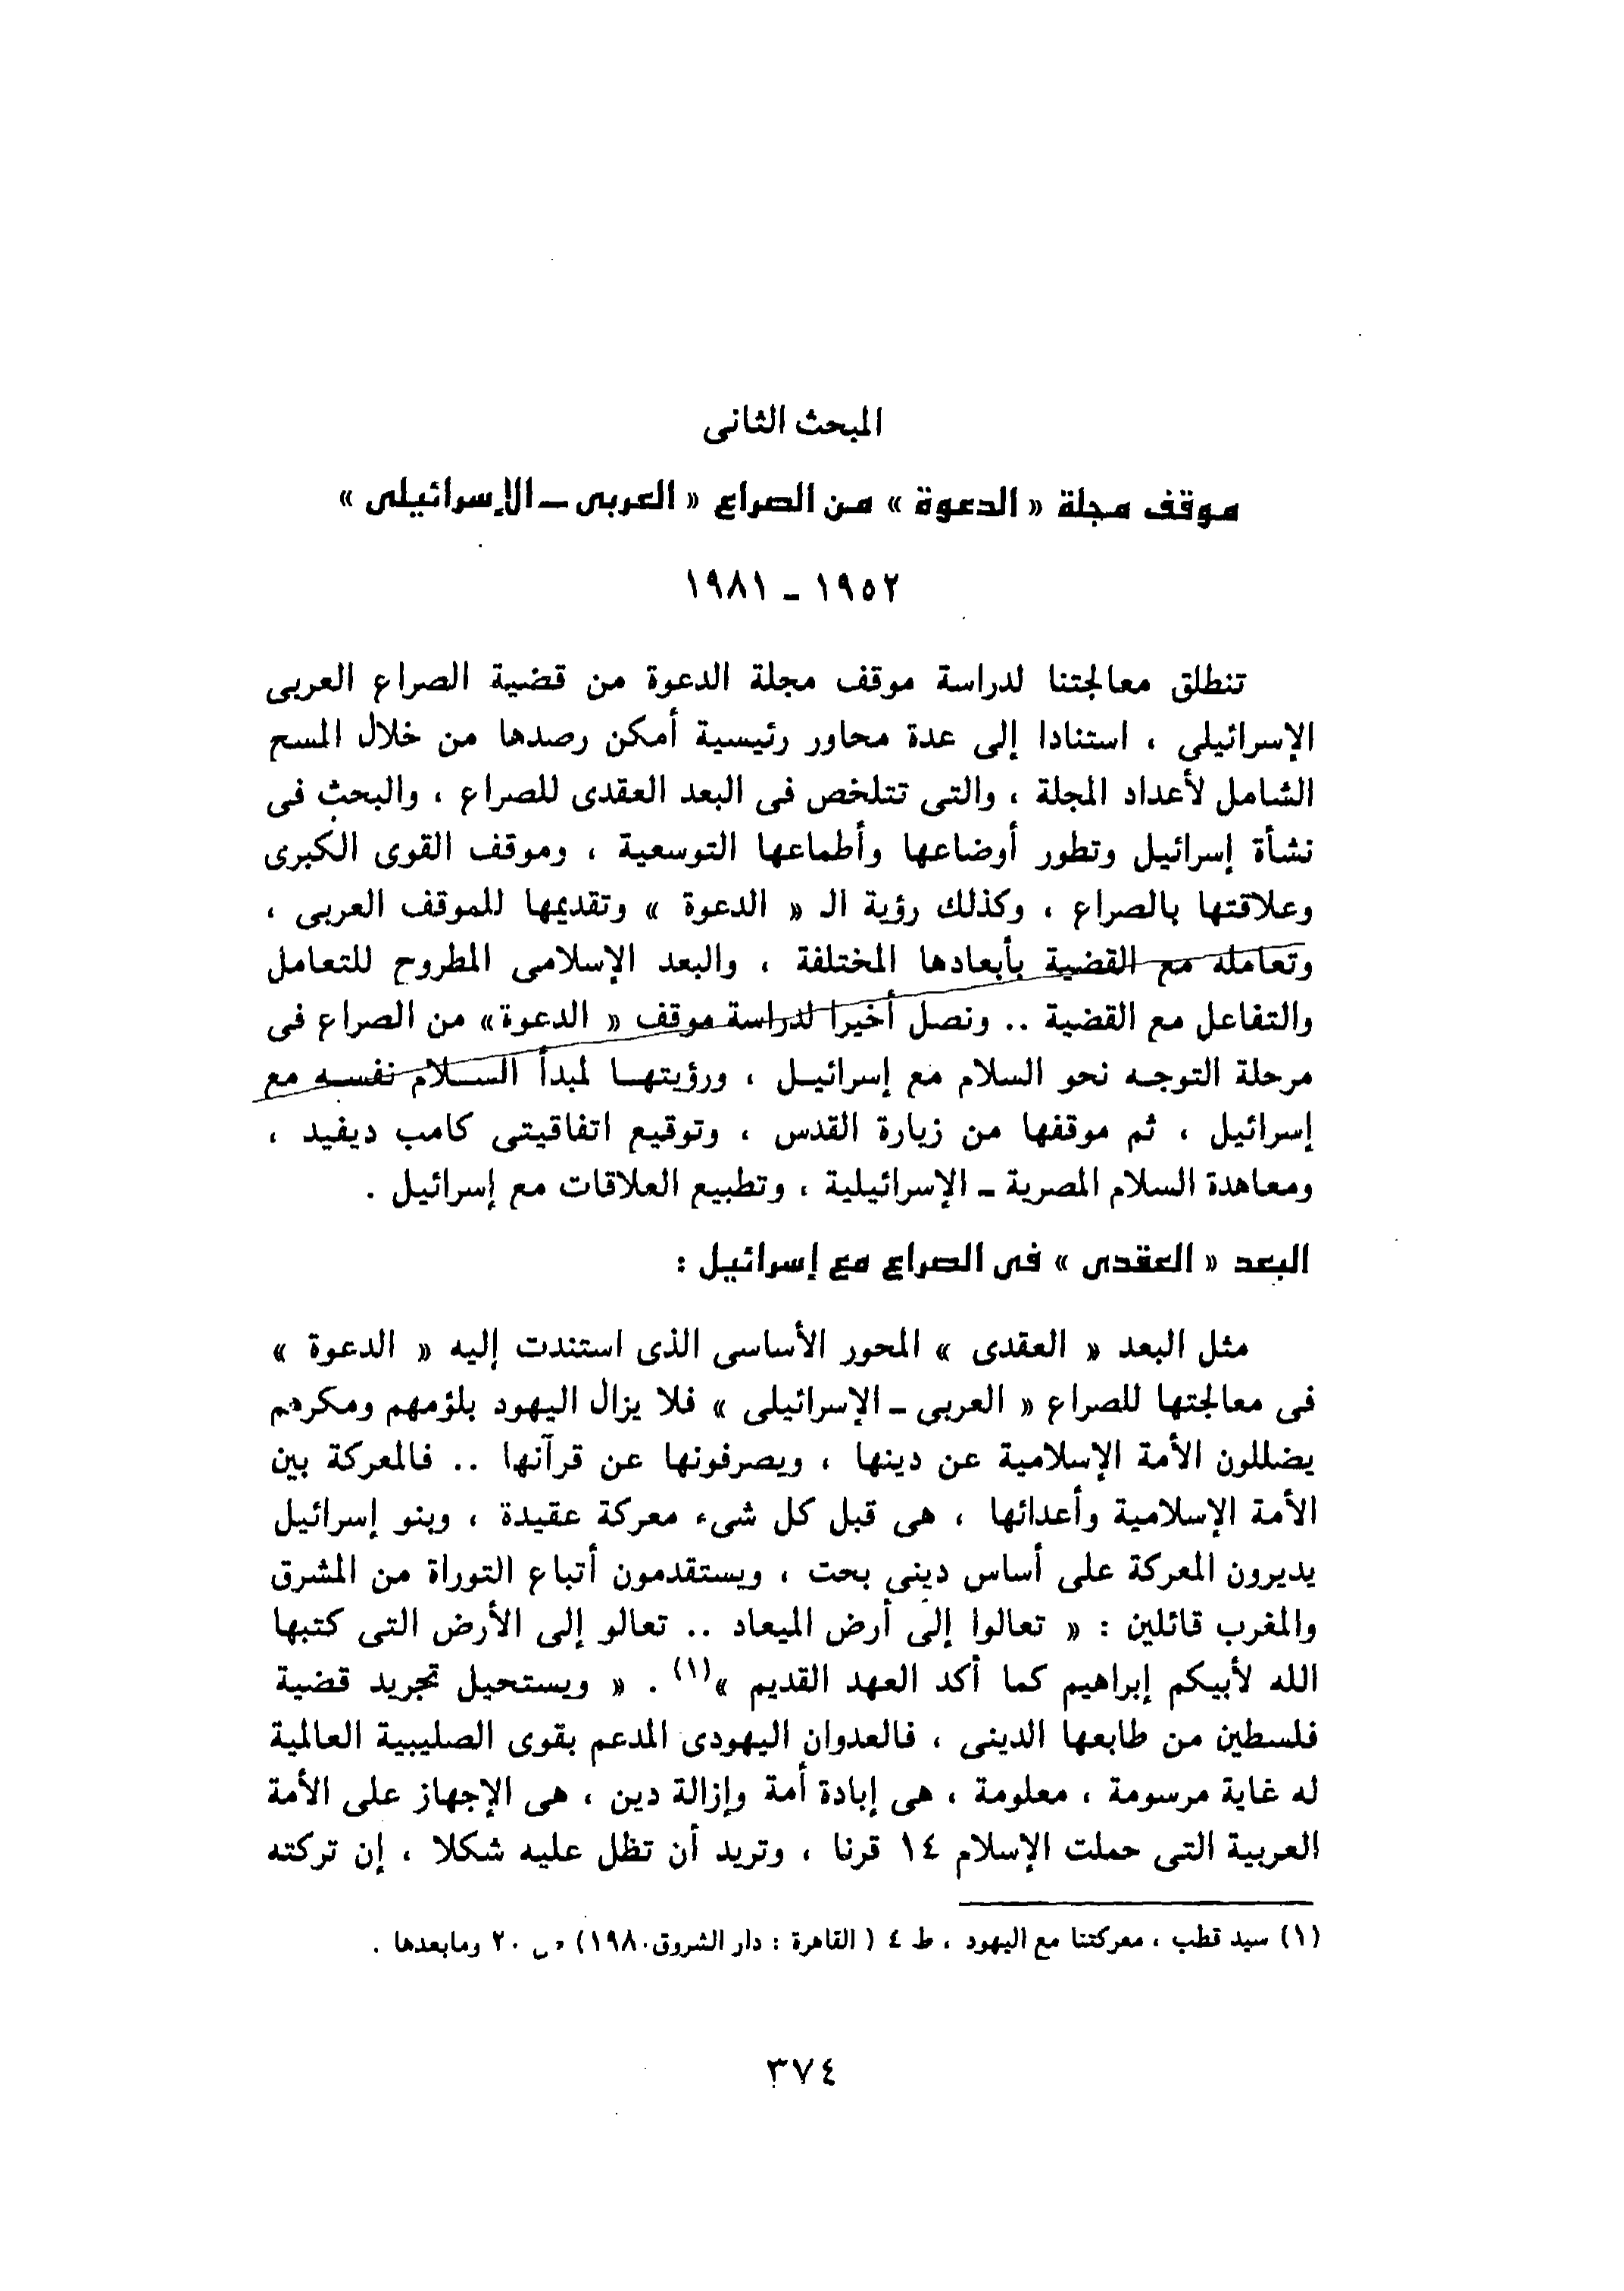 المبحث الثانى
موقف مجلة « الدعوة » من الصراع « العربى ــ الإسرائيلى »
١٩٥٢ ــ ١٩٨١
تنطلق معالجتنا لدراسة موقف مجلة الدعوة من قضية الصراع العربى
الإسرائيلى ، استنادا إلى عدة محاور رئيسية أمكن رصدها من خلال المسح
الشامل لأعداد المجلة ، والتى تتلخص فى البعد العقدى للصراع ، والبحث فى
نشأة إسرائيل وتطور أوضاعها وأطماعها التوسعية ، وموقف القوى الكبرى
وعلاقتها بالصراع ، وكذلك رؤية الـ « الدعوة » وتقديمها للموقف العربى ،
وتعامله مع القضية بأبعادها المختلفة ، والبعد الإسلامى المطروح للتعامل
والتفاعل مع القضية .. ونصل أخيرا لدراسة موقف « الدعوة» من الصراع فى
مرحلة التوجه نحو السلام مع إسرائيل ، ورؤيتها لمبدأ السلام نفسه مع
إسرائيل ، ثم موقفها من زيارة القدس ، وتوقيع اتفاقيتى كامب ديفيد ،
ومعاهدة السلام المصرية ــ الإسرائيلية ، وتطبيع العلاقات مع إسرائيل .
البعد « العقدى » فى الصراع مع إسرائيل :
مثل البعد « العقدى » المحور الأساسى الذى استندت إليه « الدعوة »
فى معالجتها للصراع « العربى ــ الإسرائيلى » فلا يزال اليهود بلؤمهم ومكرهم
يضللون الأمة الإسلامية عن دينها ، ويصرفونها عن قرآنها .. فالمعركة بين
الأمة الإسلامية وأعدائها ، هى قبل كل شىء معركة عقيدة ، وبنو إسرائيل
يديرون المعركة على أساس دينى بحت ، ويستقدمون أتباع التوراة من المشرق
والمغرب قائلين : « تعالوا إلى أرض الميعاد .. تعالو إلى الأرض التى كتبها
الله لأبيكم إبراهيم كما أكد العهد القديم »(١) . « ويستحيل تجريد قضية
فلسطين من طابعها الدينى ، فالعدوان اليهودى المدعم بقوى الصليبية العالمية
له غاية مرسومة ، معلومة ، هى إبادة أمة وإزالة دين ، هى الإجهاز على الأمة
العربية التى حملت الإسلام ١٤ قرنا ، وتريد أن تظل عليه شكلا ، إن تركته
(١) سيد قطب ، معركتنا مع اليهود ، ط ٤ ( القاهرة : دار الشروق١٩٨٠) ص ٢٠ ومابعدها .
٣٧٤